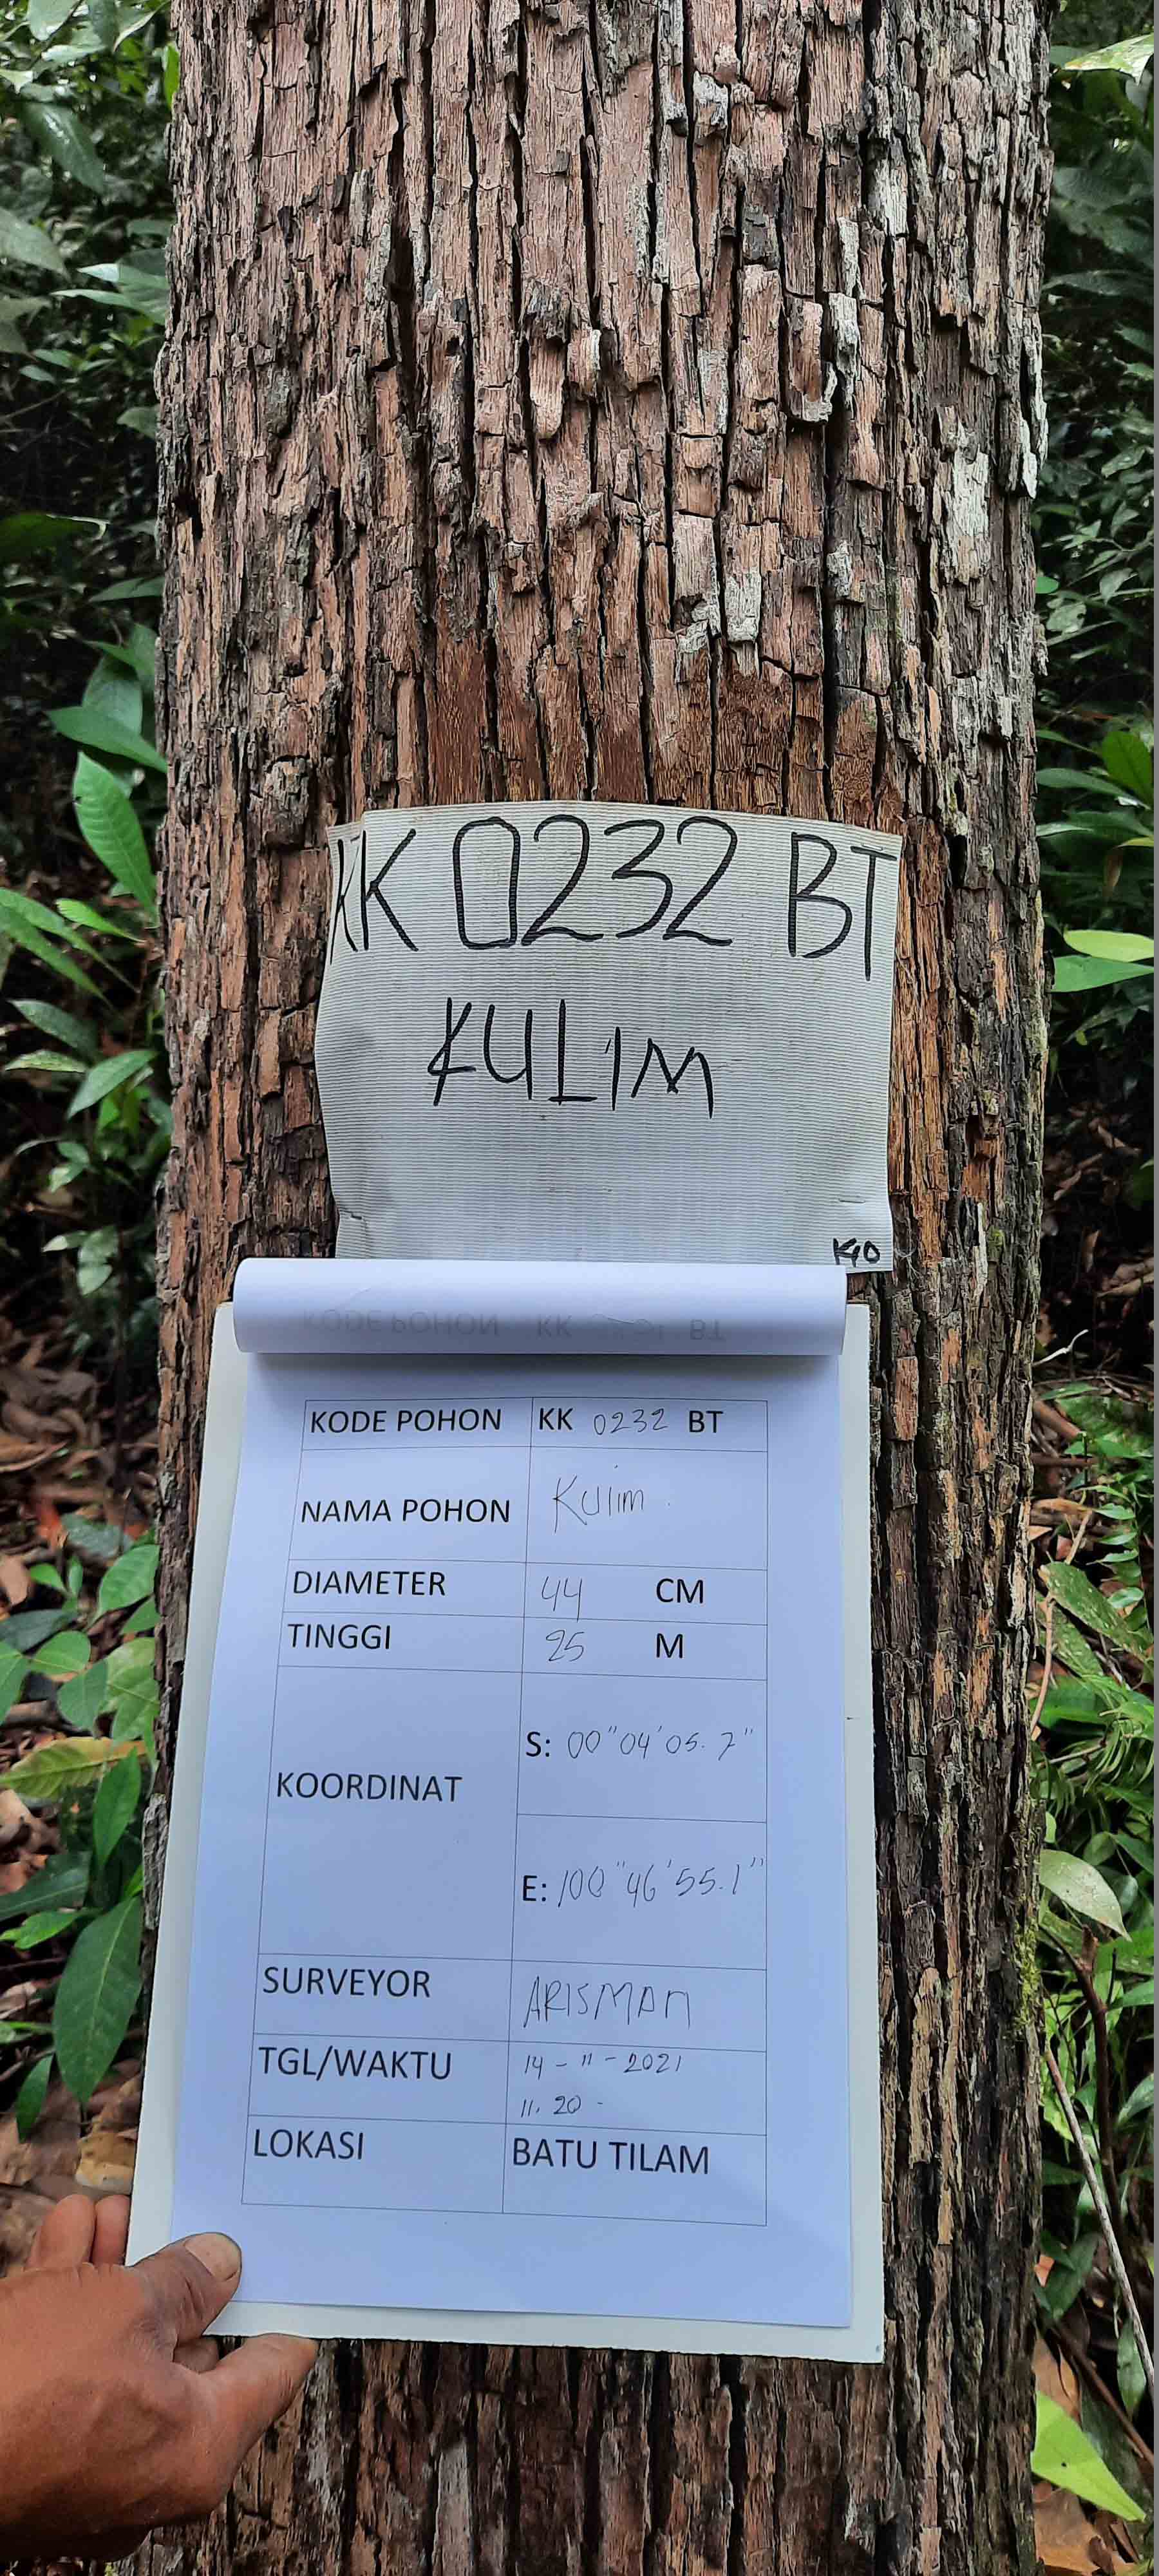 KK 0232 BT
KULIM
KODE POHON KK BT
KODE POHON KK 0232 BT
NAMA POHON Kulim
DIAMETER 44 CM
TINGGI 25 M
KOORDINAT
S: 00"04'05.7"
E: 100"46'55.1"
SURVEYOR ARISMAN
TGL/WAKTU 14-11-2021
11.20
LOKASI BATU TILAM